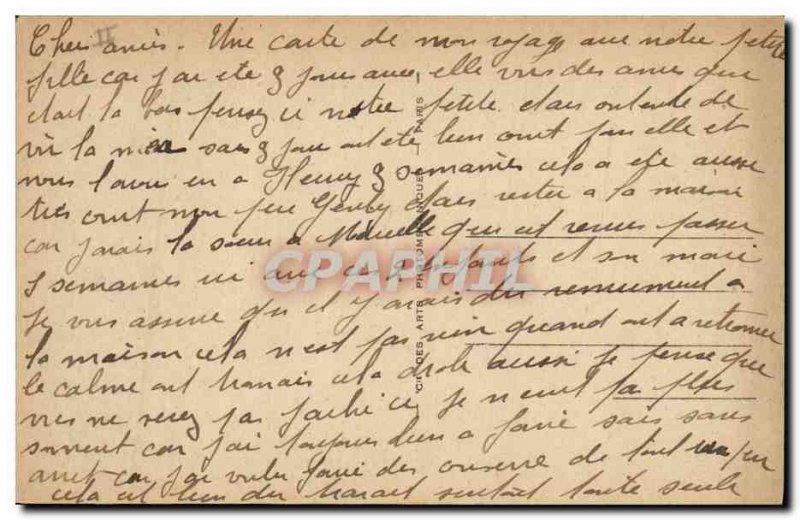 Chers amis. Une carte de mon voyage avec notre petite
fille car j'ai ete 3 jours avec elle vois des amis que
etait la bas pensez si notre petite etais contente de
vir la mer sais 3 jour ont ete bien court pour elle et
nous l'avons eu a Henry 3 semaines cela a ete aussi
tres court mon peu etais rester a la maison
car j'avais la sœur a Marcelle qui est venus passer
3 semaines ici avec ces enfants et son mari
Je vous assure qu'il y avais du remument a
la maison cela n'est pas rien quand ont a retrouver
le calme ont trouvais cela drole aussi je pense que
vous ne serez pas faché si je n'ecrit pas plus
souvent car j'ai toujours bien a faire sais sans
arret car j'ai voulu faire des conserve de tout un peu
cela est bien du travail surtout toute seule
CIE DES ARTS PHOTOMECANIQUES — PARIS
CPARPHIL